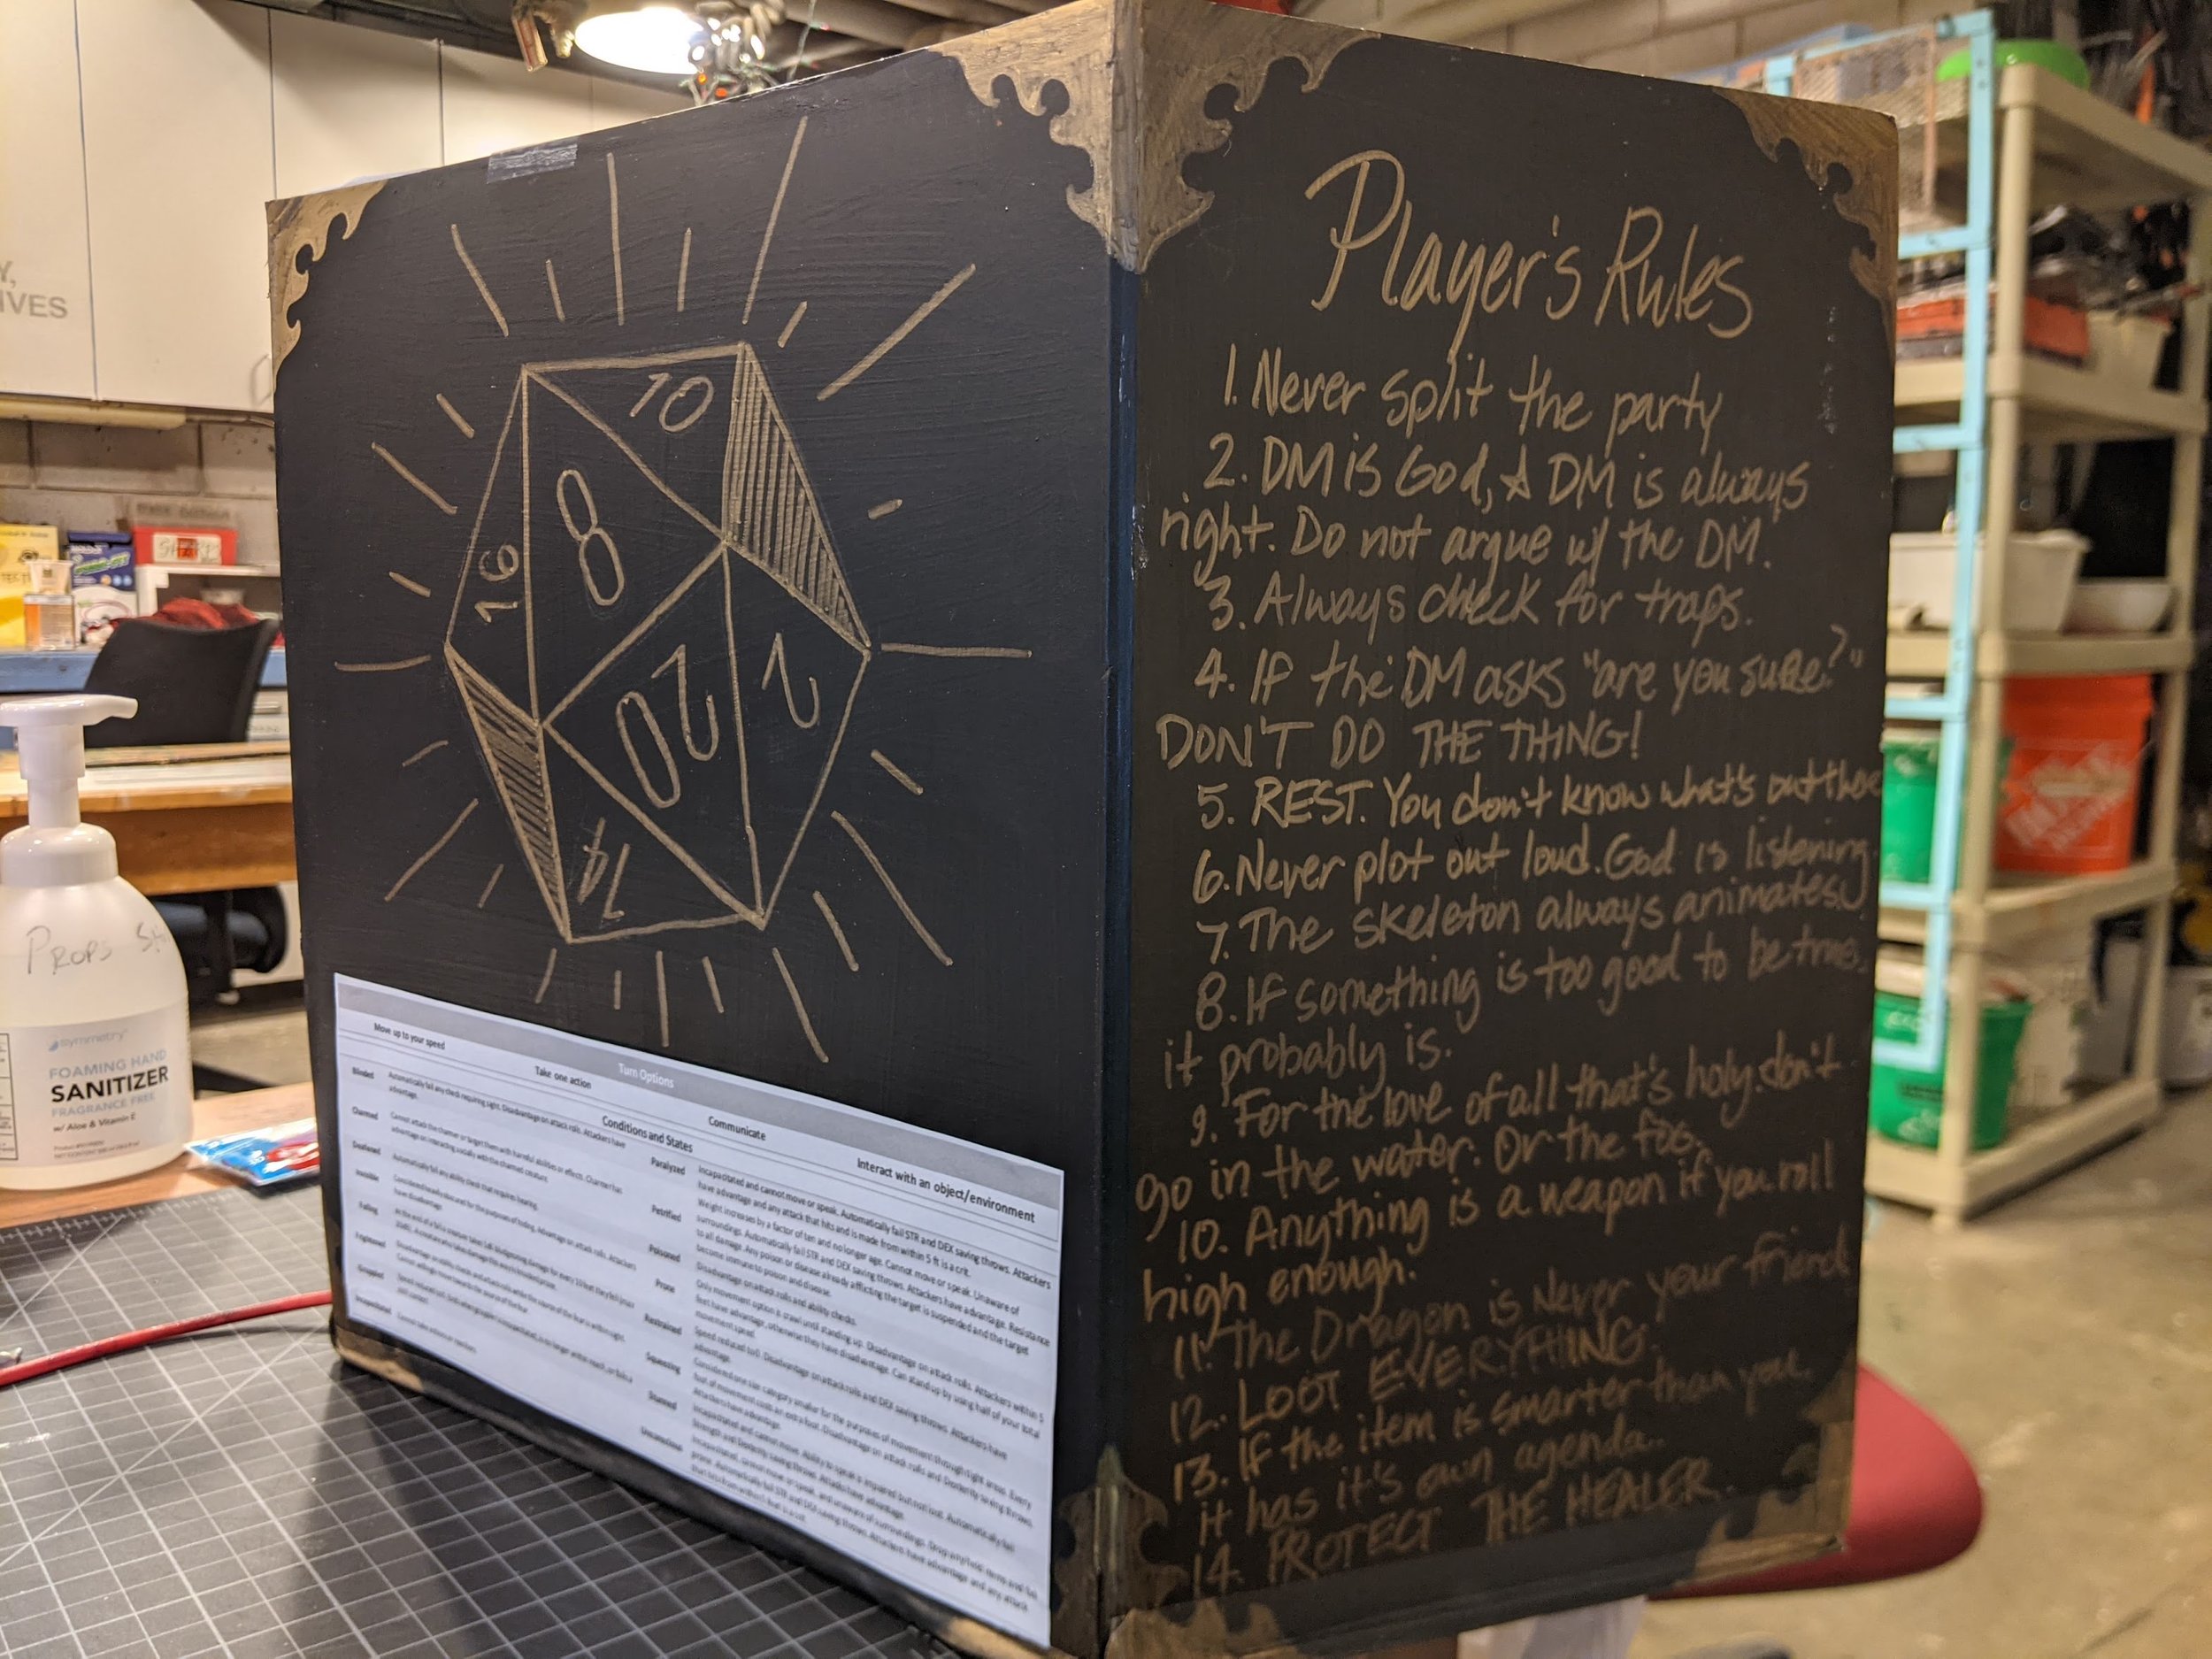 IVES
SHARPS
PROPS
symmetry
FOAMING HAND
SANITIZER
FRAGRANCE FREE
w/ Aloe & Vitamin C
10
8
16
20
2
14
Turn Options
Move up to your speed
Take one action
Communicate
Interact with an object/environment
Conditions and States
Blinded
Automatically fail any check requiring sight. Disadvantage on attack rolls. Attackers have
advantage.
Charmed
Cannot attack the charmer or target them with harmful abilities or effects. Charmer has
advantage on interacting socially with the charmed creature.
Deafened
Automatically fail any ability check that requires hearing.
Invisible
Considered heavily obscured for the purposes of hiding. Advantage on attack rolls. Attackers
have disadvantage.
Falling
Frightened
Grappled
Incapacitated
Cannot take actions or reactions.
Paralyzed
Incapacitated and cannot move or speak. Automatically fail STR and DEX saving throws. Attackers
have advantage and any attack that hits and is made from within 5 ft is a crit.
Petrified
Weight increases by a factor of ten and no longer age. Cannot move or speak. Unaware of
surroundings. Automatically fail STR and DEX saving throws. Attackers have advantage. Resistance
to all damage. Any poison or disease already afflicting the target is suspended and the target
become immune to poison and disease.
Poisoned
Disadvantage on attack rolls and ability checks.
Prone
Only movement option is crawl until standing up. Disadvantage on attack rolls. Attackers within 5
feet have advantage, otherwise they have disadvantage. Can stand up by using half of your total
movement speed.
Restrained
Speed reduced to 0. Disadvantage on attack rolls and DEX saving throws. Attackers have
advantage.
Squeezing
Considered one size category smaller for the purposes of movement through tight areas. Every
foot of movement costs an extra foot. Disadvantage on attack rolls and Dexterity saving throws.
Attackers have advantage.
Stunned
Incapacitated and cannot move. Ability to speak is impaired but not lost. Automatically fail
Strength and Dexterity saving throws. Attackers have advantage.
Unconscious
Player's Rules
1. Never split the party
2. DM is God, & DM is always
right. Do not argue w/ the DM.
3. Always check for traps.
4. If the DM asks "are you sure?"
DON'T DO THE THING!
5. REST. You don't know what's out there
6. Never plot out loud. God is listening.
7. The skeleton always animates.
8. If something is too good to be true,
it probably is.
9. For the love of all that's holy. don't
go in the water. Or the fog.
10. Anything is a weapon if you roll
high enough.
11. The Dragon is Never your friend
12. LOOT EVERYTHING.
13. If the item is smarter than you,
it has it's own agenda.
14. PROTECT THE HEALER.